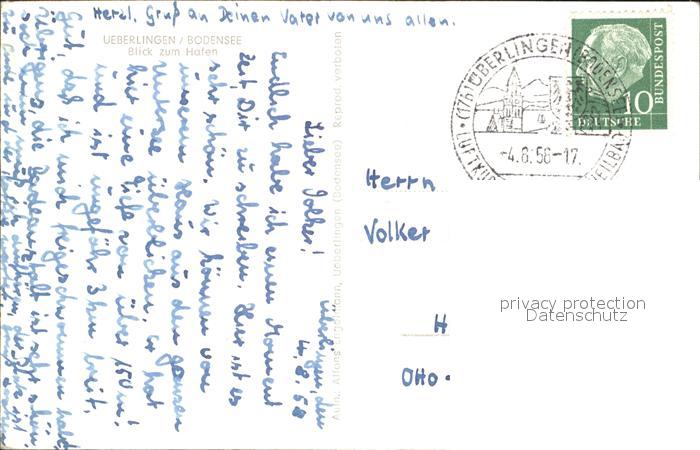 Herzl. Gruß an Deinen Vater von uns allen.
UEBERLINGEN / BODENSEE
Blick zum Hafen
Überlingen, den
4.8.58
Lieber Volker!
Endlich habe ich einen Moment
Zeit, Dir zu schreiben. Hier ist es
sehr schön. Wir können von
unserem Haus aus den ganzen
See überblicken. Er hat
hier eine Tiefe von über 150 m!
und ist ungefähr 3 km breit.
Gut, daß ich mich freigeschwommen habe.
Übrigens, die Badeanstalt ist sehr schön
Aufn. Alfons Engelmann, Ueberlingen (Bodensee) Reprod. verboten
(17b) ÜBERLINGEN BODENSEE
-4.8.58-17.
10
DEUTSCHE
BUNDESPOST
Herrn
Volker
H
Otto
privacy protection
Datenschutz